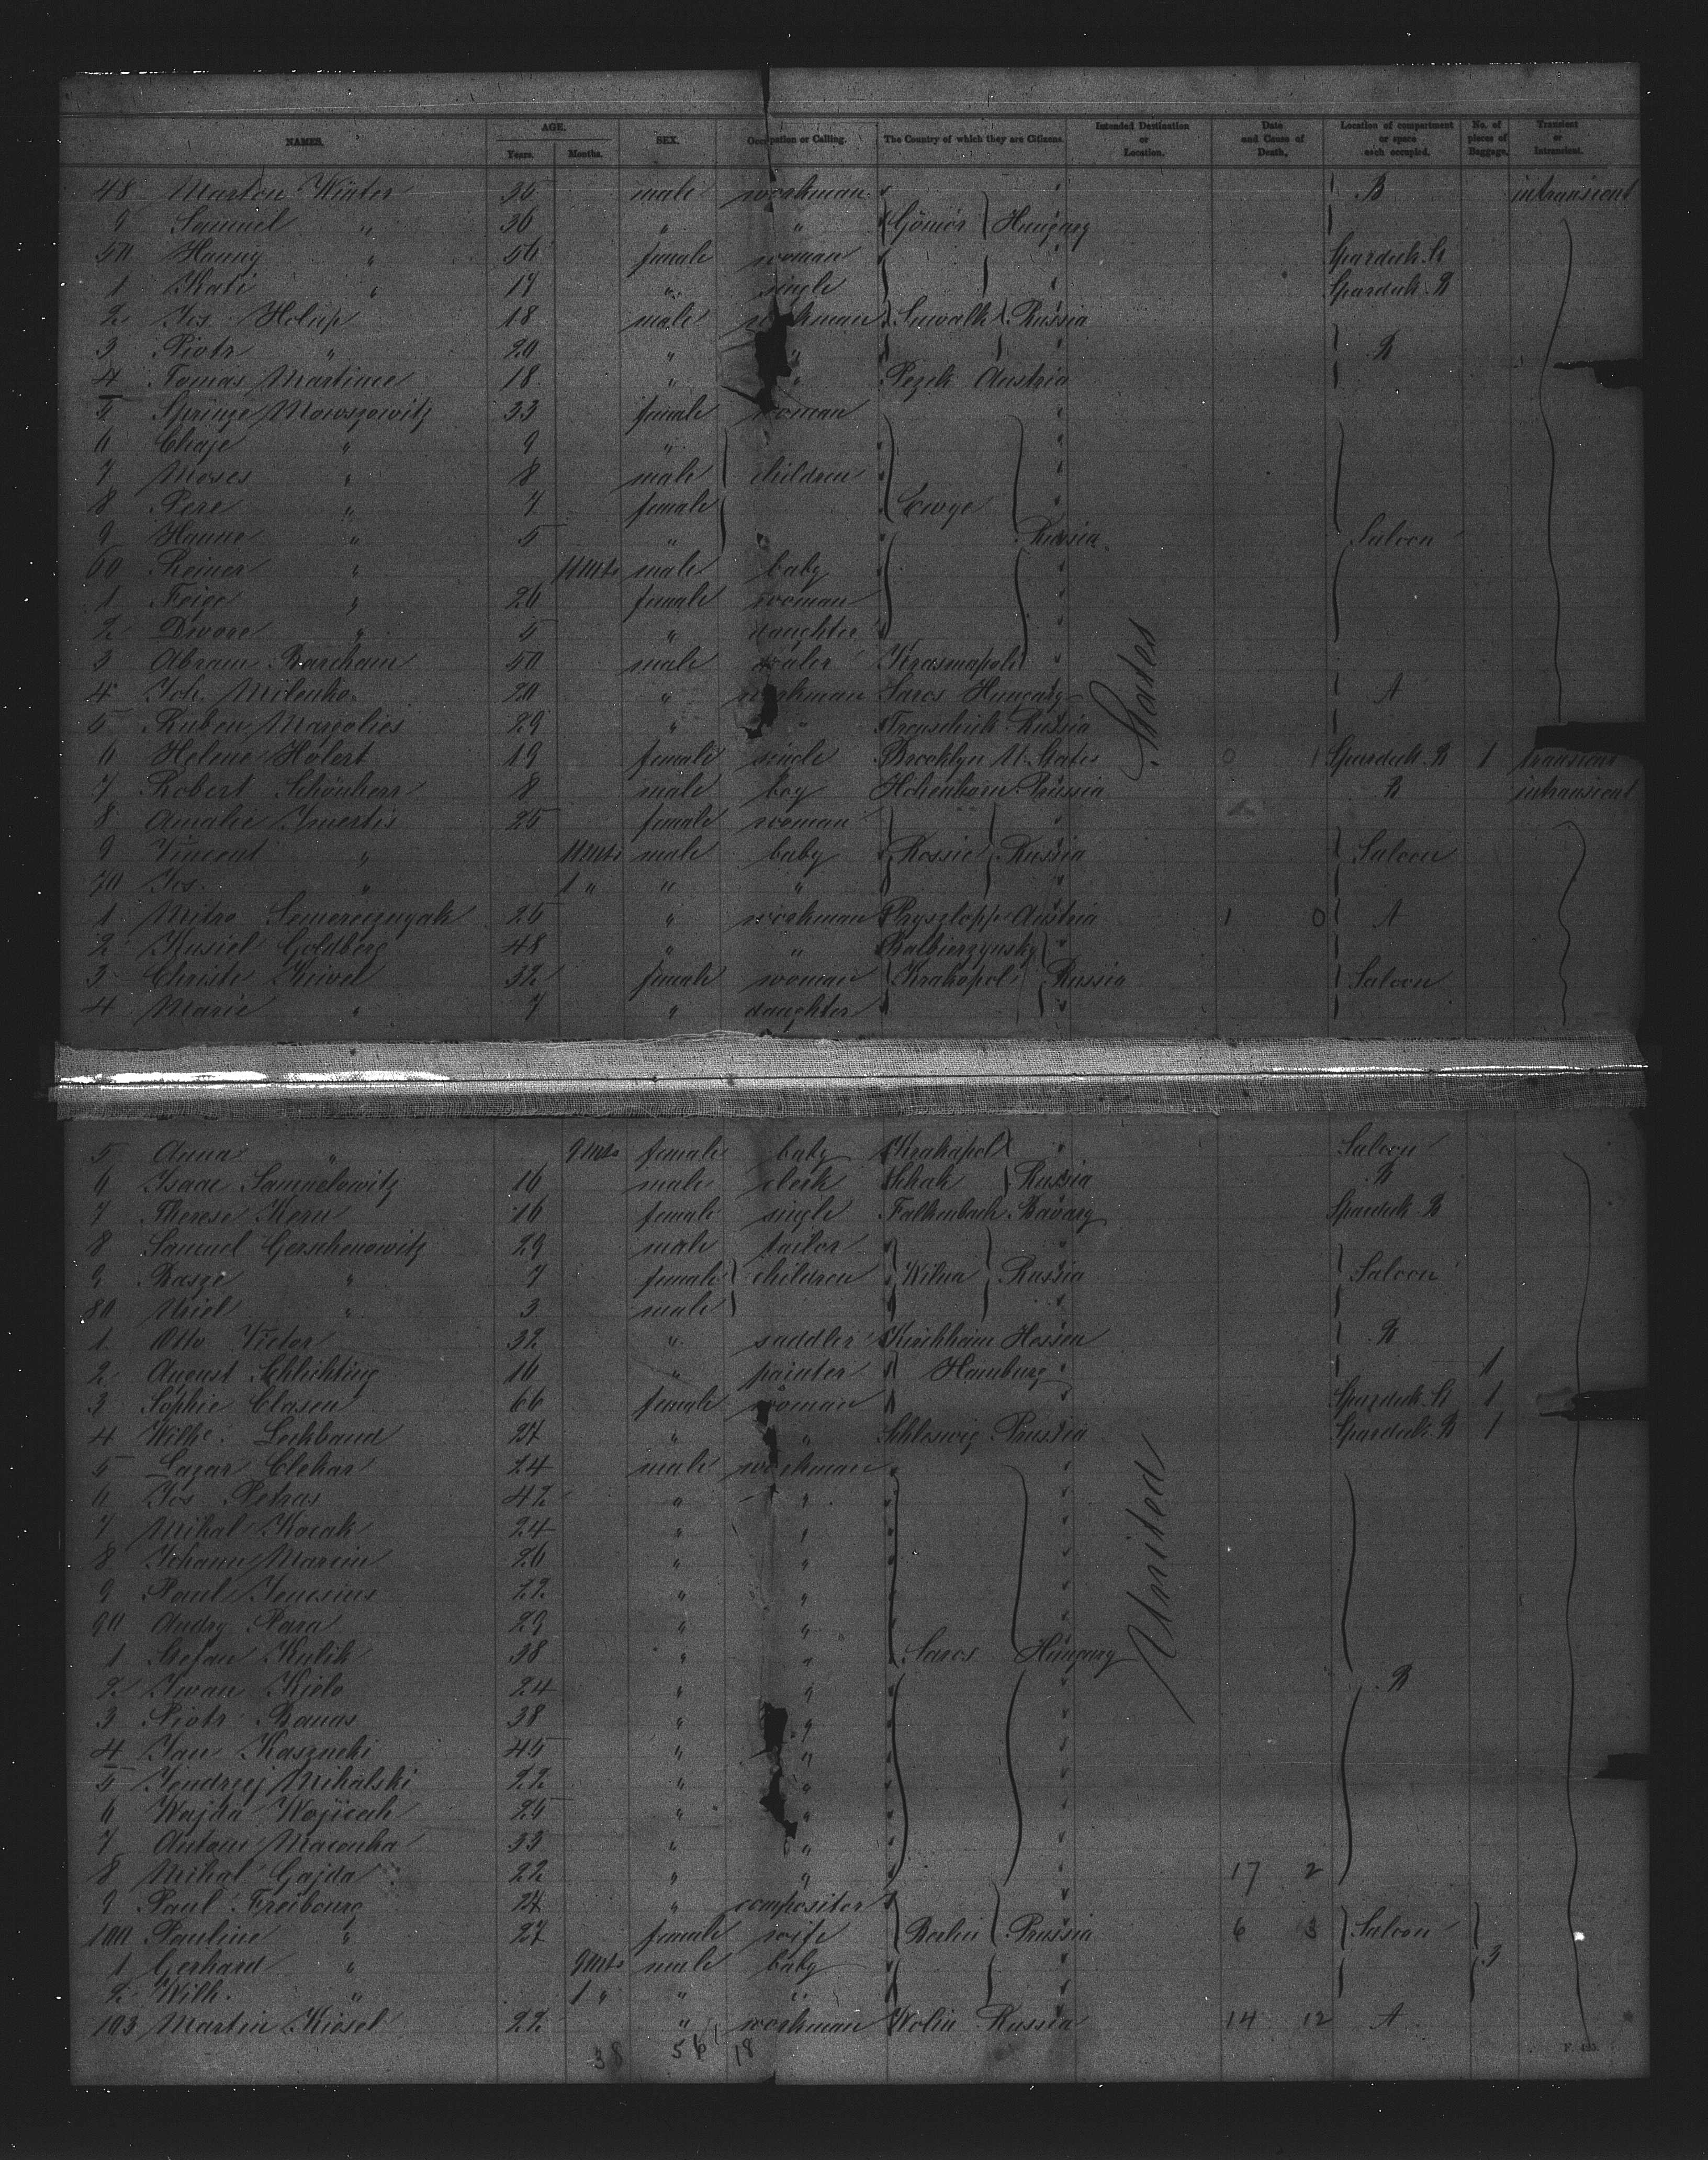 NAMES. AGE. Years. Months. SEX. Occupation or Calling. The Country of which they are Citizens. Intended Destination or Location. Date and Cause of Death. Location of compartment or space each occupied. No. of pieces of Baggage. Transient or Intransient.
48 Marton Winter 35 male workman B intransient
9 Samuel " 30 " " Gömör Hungary
50 Hanny " 56 female woman Spardeck St
1 Kati " 17 " single Spardeck B
2 Jos. Holup 18 male workman Suwalk Russia
3 Piotr " 20 " " B
4 Tomas Martince 18 " " Pezek Austria
5 Sprinze Mowszowitz 33 female woman
6 Chaje " 9 "
7 Moses " 8 male children
8 Pere " 7 female Ewye
9 Hanne " 5 " Russia Saloon
60 Reiner " 11 Mts male baby
1 Feige " 26 female woman
2 Dwore " 5 " daughter
3 Abram Barcham 50 male dealer Krasmapoli
4 Joh. Milenko 20 " workman Saros Hungary A
5 Ruben Margolies 29 " " Russia
6 Helene Holert 19 female single Brooklyn U. States 0 1 Spardeck B 1 transient
7 Robert Schönherr 8 male boy Hohenhorn Prussia B intransient
8 Amalie 25 female woman
9 Vincent " 11 Mts male baby Rossie Russia Saloon
70 Jos. " 1 " " "
1 Mitro 25 " workman Prysztopp Austria 1 0 A
2 Kusiel Goldberg 48 " " Balbierzynsky
3 Christe Kiwel 32 female woman Krakopol Russia Saloon
4 Marie " 7 " daughter
States
5 Anna " 9 Mts female baby Krakapol Saloon
6 Isaac Samuelowitz 16 male clerk Schak Russia B
7 Therese Kern 16 female single Falkenbach Bavary Spardeck B
8 Samuel Gerschenowitz 29 male tailor
9 Basze " 7 female children Wilna Russia Saloon
80 Uriel " 3 male
1 Otto Victor 32 " saddler Kirchhain Hessen B
2 August Schlichting 16 " painter Hamburg 1
3 Sophie Clasen 66 female woman Spardeck St 1
4 Wilhe. Lockband 27 " " Schleswig Prussia Spardeck B 1
5 Lazar Clekar 24 male workman
6 Jos Petras 42 " "
7 Mihal Kocak 24 " "
8 Johann Marcin 26 " "
9 Paul 22 " "
90 Andry Para 29 " "
1 Stefan Kulik 38 " " Saros Hungary
2 Iwan Kjelo 24 " " B
3 Piotr Banas 38 " "
4 Jan Kaszncki 45 " "
5 Jendrzej Mihalski 22 " "
6 Wajda Wojicch 25 " "
7 Antoni Maconka 33 " "
8 Mihal Gajda 22 " " 17 2
9 Paul Freibourg 24 " compositor
100 Pauline " 27 female wife Berlin Prussia 6 3 Saloon
1 Gerhard " 9 Mts male baby 3
2 Wilh. " 1 " " "
103 Martin Kiesel 22 " workman Wolin Russia 14 12 A
United
38 56 18